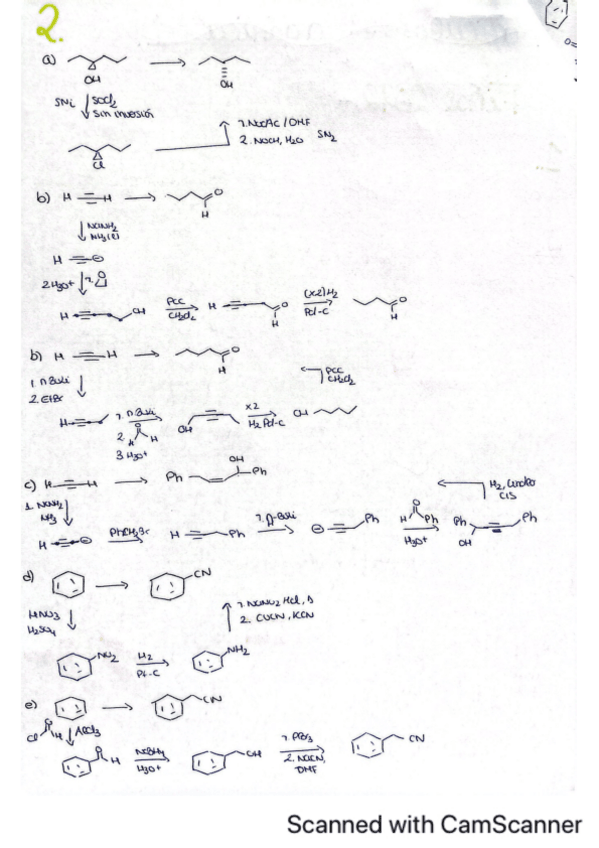 2.
a)
OH
OH
SNi SOCl2
Sin inversión
1. NaOAc / DMF
2. NaOH, H2O SN2
Cl
b) H H O
H
NaNH2
NH3(l)
H
2. H3O+ 1. O
H OH PCC H O (x2) H2 O
CH2Cl2 H Pd-C H
b) H H O
H
1. nBuLi PCC
2. EtBr CH2Cl2
H 1. nBuLi OH x2 OH
2. H H H2 Pd-C
3. H3O+
c) H H Ph OH Ph
H2, Lindlar
cis
1. NaNH2
NH3
H PhCH2Br H Ph 1. n-BuLi Ph O H Ph Ph Ph
H3O+ OH
d) CN
HNO3
H2SO4
1. NaNO2 HCl, Δ
2. CuCN, KCN
NO2 H2 NH2
Pt-C
e) CN
Cl O H AlCl3
O H NaBH4 OH 1. PBr3 CN
H3O+ 2. NaCN,
DMF
Scanned with CamScanner